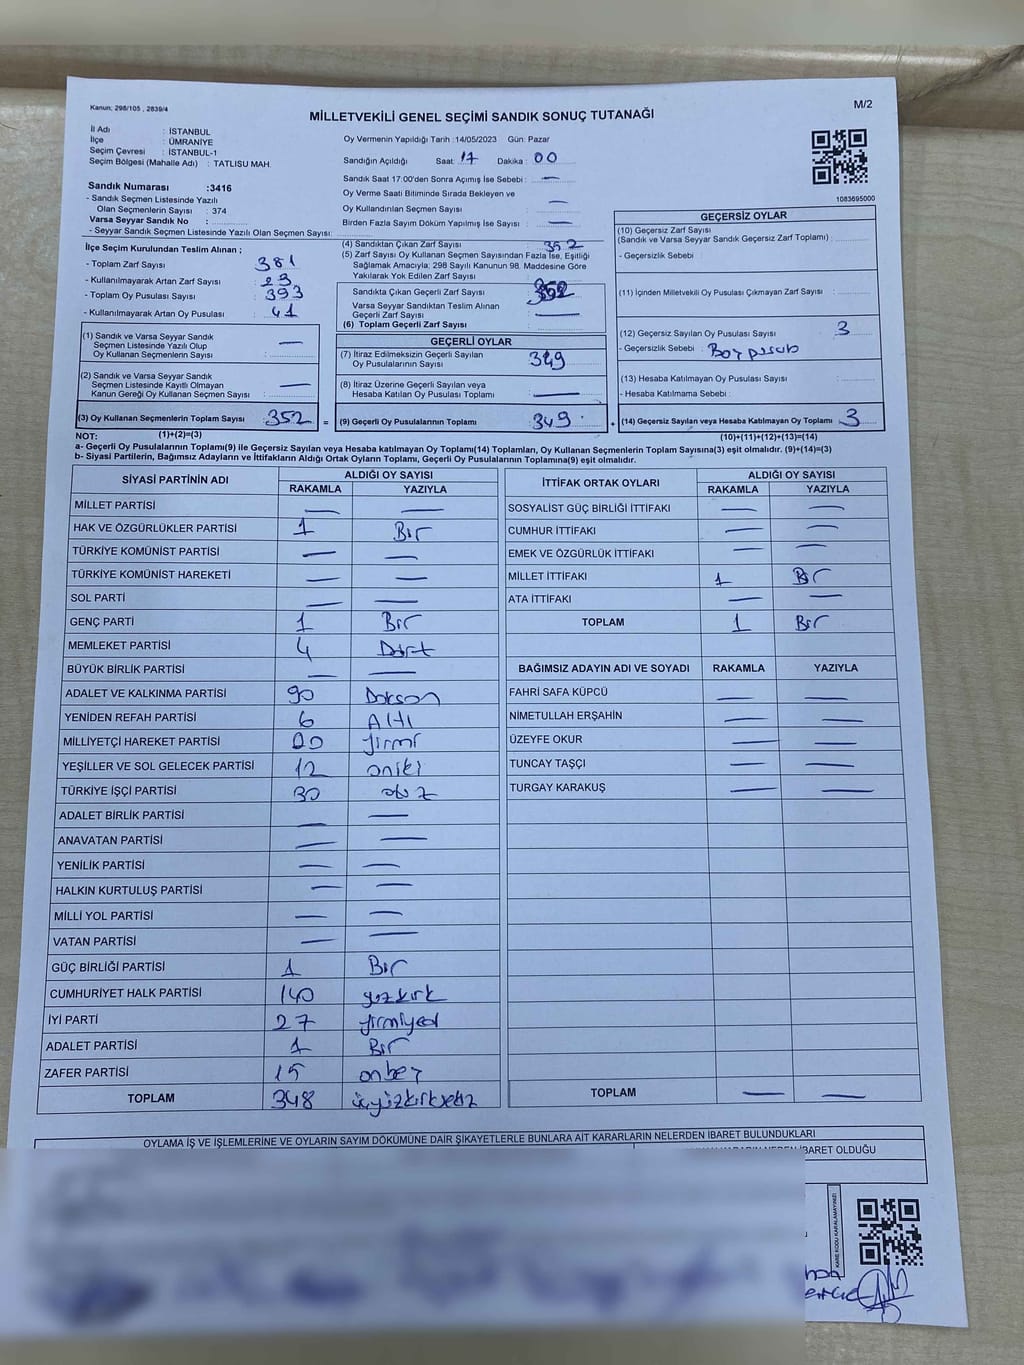 Kanun; 298/105 , 2839/4
M/2
MİLLETVEKİLİ GENEL SEÇİMİ SANDIK SONUÇ TUTANAĞI
İl Adı : İSTANBUL
İlçe : ÜMRANİYE
Seçim Çevresi : İSTANBUL-1
Seçim Bölgesi (Mahalle Adı) : TATLISU MAH.
Sandık Numarası :3416
- Sandık Seçmen Listesinde Yazılı
Olan Seçmenlerin Sayısı : 374
Varsa Seyyar Sandık No :
- Seyyar Sandık Seçmen Listesinde Yazılı Olan Seçmen Sayısı:
Oy Vermenin Yapıldığı Tarih :14/05/2023 Gün: Pazar
Sandığın Açıldığı Saat 17 Dakika : 00
Sandık Saat 17:00'den Sonra Açılmış İse Sebebi : —
Oy Verme Saati Bitiminde Sırada Bekleyen ve
Oy Kullandırılan Seçmen Sayısı : —
Birden Fazla Sayım Döküm Yapılmış İse Sayısı : —
1083695000
İlçe Seçim Kurulundan Teslim Alınan ;
- Toplam Zarf Sayısı : 381
- Kullanılmayarak Artan Zarf Sayısı : 23
- Toplam Oy Pusulası Sayısı : 393
- Kullanılmayarak Artan Oy Pusulası : 41
(1) Sandık ve Varsa Seyyar Sandık
Seçmen Listesinde Yazılı Olup
Oy Kullanan Seçmenlerin Sayısı : —
(2) Sandık ve Varsa Seyyar Sandık
Seçmen Listesinde Kayıtlı Olmayan
Kanun Gereği Oy Kullanan Seçmen Sayısı : —
(3) Oy Kullanan Seçmenlerin Toplam Sayısı : 352
(4) Sandıktan Çıkan Zarf Sayısı : 352
(5) Zarf Sayısı Oy Kullanan Seçmen Sayısından Fazla İse, Eşitliği
Sağlamak Amacıyla; 298 Sayılı Kanunun 98. Maddesine Göre
Yakılarak Yok Edilen Zarf Sayısı :
Sandıkta Çıkan Geçerli Zarf Sayısı :
Varsa Seyyar Sandıktan Teslim Alınan
Geçerli Zarf Sayısı : —
(6) Toplam Geçerli Zarf Sayısı :
GEÇERLİ OYLAR
(7) İtiraz Edilmeksizin Geçerli Sayılan
Oy Pusulalarının Sayısı : 349
(8) İtiraz Üzerine Geçerli Sayılan veya
Hesaba Katılan Oy Pusulası Toplamı : —
= (9) Geçerli Oy Pusulalarının Toplamı : 349
GEÇERSİZ OYLAR
(10) Geçersiz Zarf Sayısı
(Sandık ve Varsa Seyyar Sandık Geçersiz Zarf Toplamı) :
- Geçersizlik Sebebi :
(11) İçinden Milletvekili Oy Pusulası Çıkmayan Zarf Sayısı :
(12) Geçersiz Sayılan Oy Pusulası Sayısı : 3
- Geçersizlik Sebebi :
(13) Hesaba Katılmayan Oy Pusulası Sayısı :
- Hesaba Katılmama Sebebi :
+ (14) Geçersiz Sayılan veya Hesaba Katılmayan Oy Toplamı : 3
NOT: (1)+(2)=(3)
(10)+(11)+(12)+(13)=(14)
a- Geçerli Oy Pusulalarının Toplamı(9) ile Geçersiz Sayılan veya Hesaba katılmayan Oy Toplamı(14) Toplamları, Oy Kullanan Seçmenlerin Toplam Sayısına(3) eşit olmalıdır. (9)+(14)=(3)
b- Siyasi Partilerin, Bağımsız Adayların ve İttifakların Aldığı Ortak Oyların Toplamı, Geçerli Oy Pusulalarının Toplamına(9) eşit olmalıdır.
SİYASİ PARTİNİN ADI ALDIĞI OY SAYISI
RAKAMLA YAZIYLA
MİLLET PARTİSİ — —
HAK VE ÖZGÜRLÜKLER PARTİSİ 1 Bir
TÜRKİYE KOMÜNİST PARTİSİ — —
TÜRKİYE KOMÜNİST HAREKETİ — —
SOL PARTİ — —
GENÇ PARTİ 1 Bir
MEMLEKET PARTİSİ 4 Dört
BÜYÜK BİRLİK PARTİSİ — —
ADALET VE KALKINMA PARTİSİ 90 Doksan
YENİDEN REFAH PARTİSİ 6 Altı
MİLLİYETÇİ HAREKET PARTİSİ 20 yirmi
YEŞİLLER VE SOL GELECEK PARTİSİ 12 oniki
TÜRKİYE İŞÇİ PARTİSİ 30 otuz
ADALET BİRLİK PARTİSİ — —
ANAVATAN PARTİSİ — —
YENİLİK PARTİSİ — —
HALKIN KURTULUŞ PARTİSİ — —
MİLLİ YOL PARTİSİ — —
VATAN PARTİSİ — —
GÜÇ BİRLİĞİ PARTİSİ 1 Bir
CUMHURİYET HALK PARTİSİ 140 yüzkırk
İYİ PARTİ 27 yirmiyedi
ADALET PARTİSİ 1 Bir
ZAFER PARTİSİ 15 onbeş
TOPLAM 348 üçyüzkırksekiz
İTTİFAK ORTAK OYLARI ALDIĞI OY SAYISI
RAKAMLA YAZIYLA
SOSYALİST GÜÇ BİRLİĞİ İTTİFAKI — —
CUMHUR İTTİFAKI — —
EMEK VE ÖZGÜRLÜK İTTİFAKI — —
MİLLET İTTİFAKI 1 Bir
ATA İTTİFAKI — —
TOPLAM 1 Bir
BAĞIMSIZ ADAYIN ADI VE SOYADI RAKAMLA YAZIYLA
FAHRİ SAFA KÜPCÜ — —
NİMETULLAH ERŞAHİN — —
ÜZEYFE OKUR — —
TUNCAY TAŞÇI — —
TURGAY KARAKUŞ — —
TOPLAM — —
OYLAMA İŞ VE İŞLEMLERİNE VE OYLARIN SAYIM DÖKÜMÜNE DAİR ŞİKAYETLERLE BUNLARA AİT KARARLARIN NELERDEN İBARET BULUNDUKLARI
İBARET OLDUĞU
KARE KODU KARALAMAYINIZ!